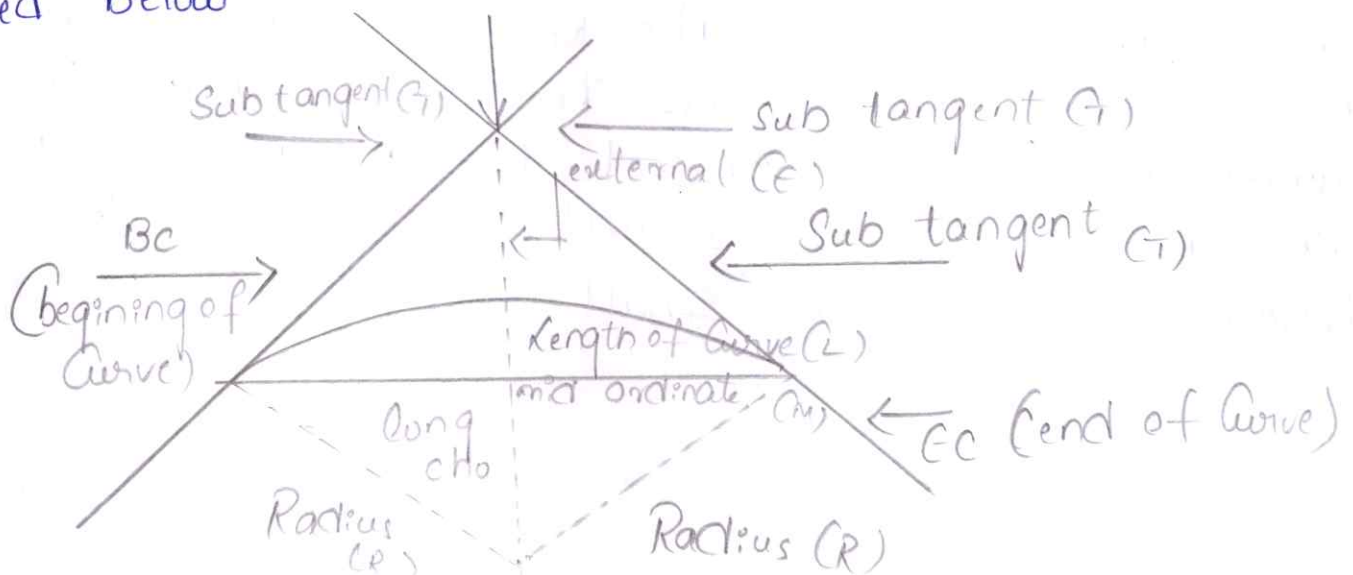 ed Below
Sub tangent (T)
Sub tangent (T)
external (E)
BC
Sub tangent (T)
(begining of
Curve)
Length of Curve (L)
mid ordinate (M)
long
cHo
EC (end of Curve)
Radius
(R)
Radius (R)